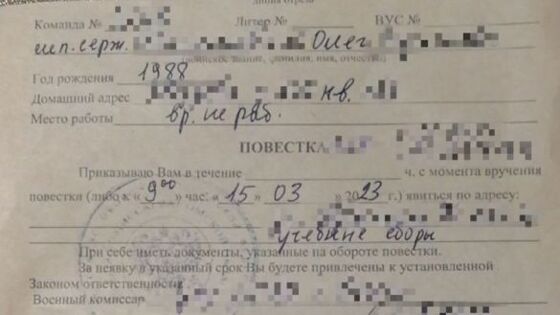 линия отреза
Команда № Литер № ВУС №
мл. серж. Олег
(воинское звание, фамилия, имя, отчество)
Год рождения 1988
Домашний адрес кв.
Место работы вр. не раб.
ПОВЕСТКА
Приказываю Вам в течение ч. с момента вручения
повестки (либо к « 9⁰⁰ » час. « 15 » 03 » 2023 г.) явиться по адресу:
учебные сборы
При себе иметь документы, указанные на обороте повестки.
За неявку в указанный срок Вы будете привлечены к установленной
Законом ответственности
Военный комиссар